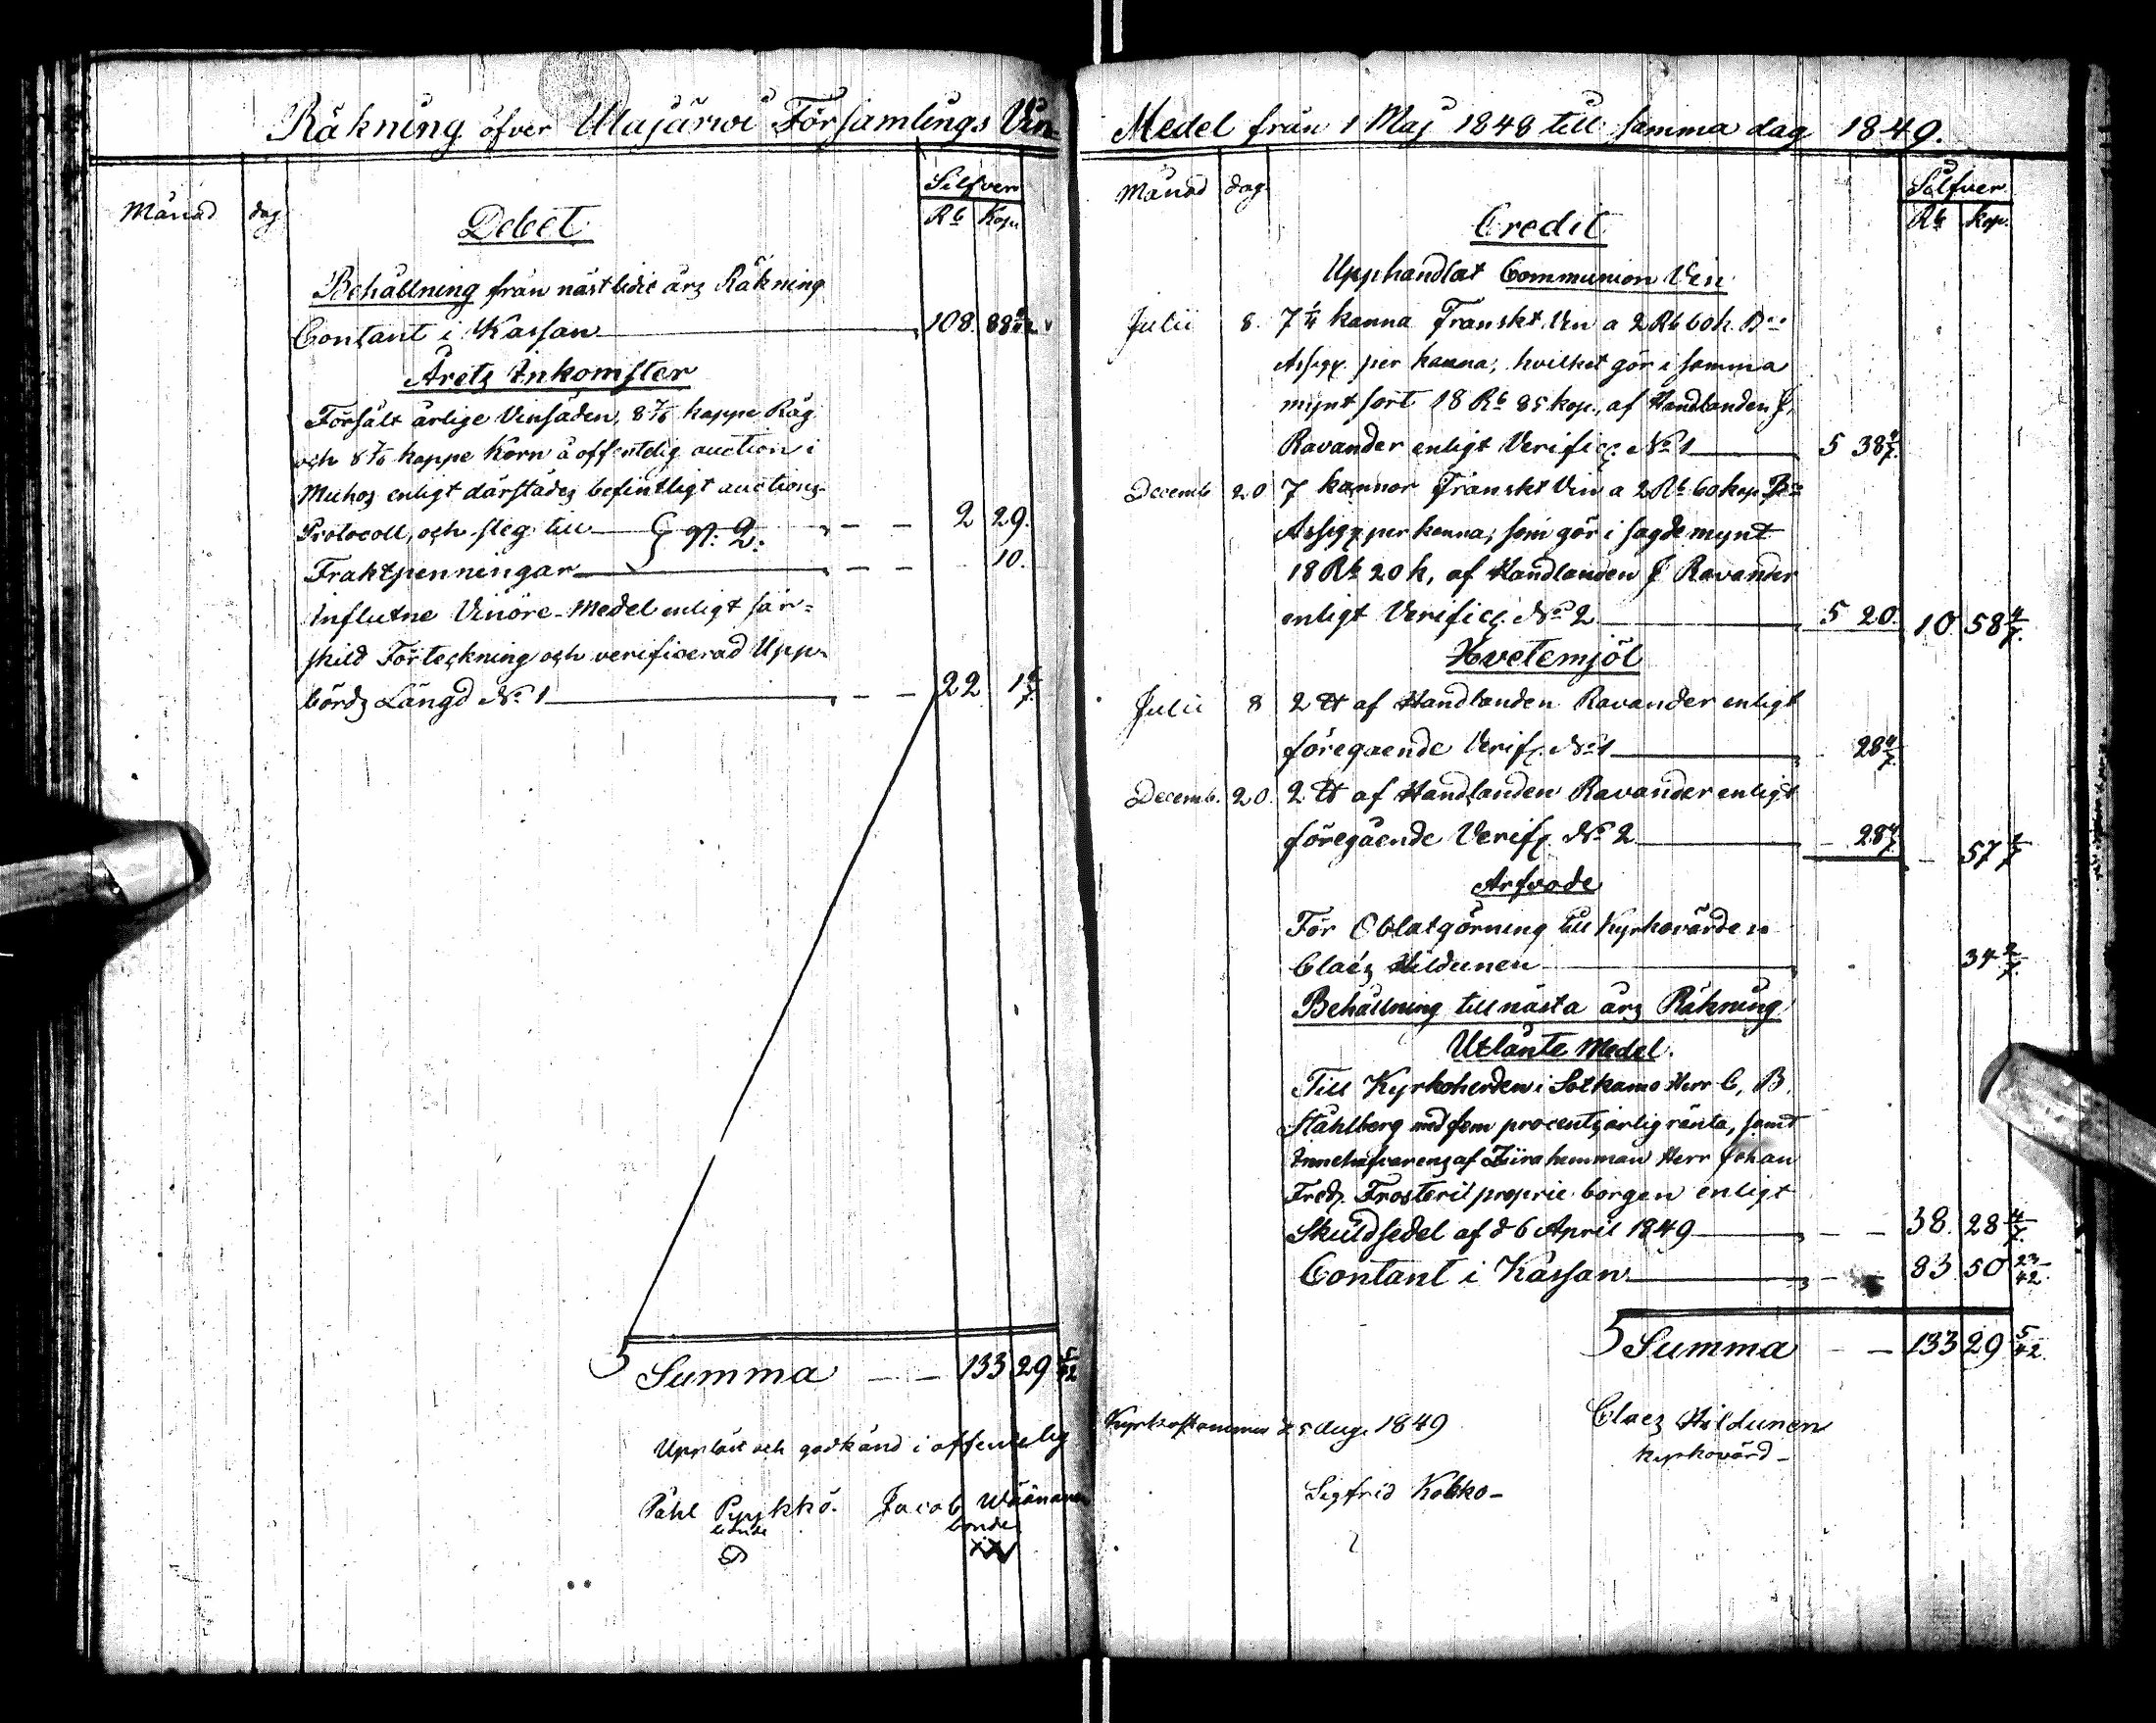 Räkning öfver Ulajärwi Församlings Vin-
Månad dag Silfver
Debet Rb Kop.
Behållning från nästledit årz Räkning
Contant i Kassan 108. 88
Åretz Inkomster
Försålt årlige Vinsäden, 8 7/8 kappe Råg
och 8 7/8 kappe Korn å offentelig auction i
Muhos enligt därstädes befintligt auctions-
Protocoll, och steg till 2 29.
Fraktpenningar 10.
Influtne Vinöre-Medel enligt sär-
skild Förteckning och verificerad Upp-
bördz Längd No 1 22 1 6/7.
Summa 133 29 5/42
Uppläst och godkänd i offentelig
Påhl Pyykkö. Jacob Wäänänen
bonde bonde
Medel från 1 Maj 1848 till samma dag 1849.
Månad dag. Silfver
Credit Rb kop.
Upphandlat Communion Vin
Julii 8. 7 1/4 kanna Franskt Vin a 2 Rb 60 k. Bco
Assign. per kanna, hvilket gör i samma
mynt sort 18 Rb 85 kop., af Handlanden J.
Ravander enligt Verific. No 1 5 38 4/7.
Decemb 20 7 kannor Franskt Vin a 2 Rb 60 kop. Bco
Assign per kanna, som gör i sagde mynt
18 Rb 20 k, af Handlanden J Ravander
enligt Verific. No 2 5 20. 10 58 4/7.
Hvetemjöl
Julii 8 2 ℔ af Handlanden Ravander enligt
föregaende Verif. No 1 28 4/7.
Decemb. 20. 2 ℔ af Handlanden Ravander enligt
föregående Verif. No 2 28 4/7. 57 1/7
Arfvode
För Oblatgörning till Kyrkovärden
Claës Hildunen 34 2/7.
Behållning till nästa årz Räkning
Utlånte Medel.
Till Kyrkoherden i Sotkamo Herr C. B.
Ståhlberg med fem procentz årlig ränta, samt
Innehafvarens af Ziira hemman Herr Johan
Fredr. Frosteri proprie borgen enligt
Skuldsedel af d 6 April 1849 38. 28 4/7.
Contant i Kassan 83 50 23/42.
Summa 133 29 5/42.
Kyrkostämma d 5 Aug. 1849
Claes Hildunen
kyrkovärd
Sigfrid Kokko